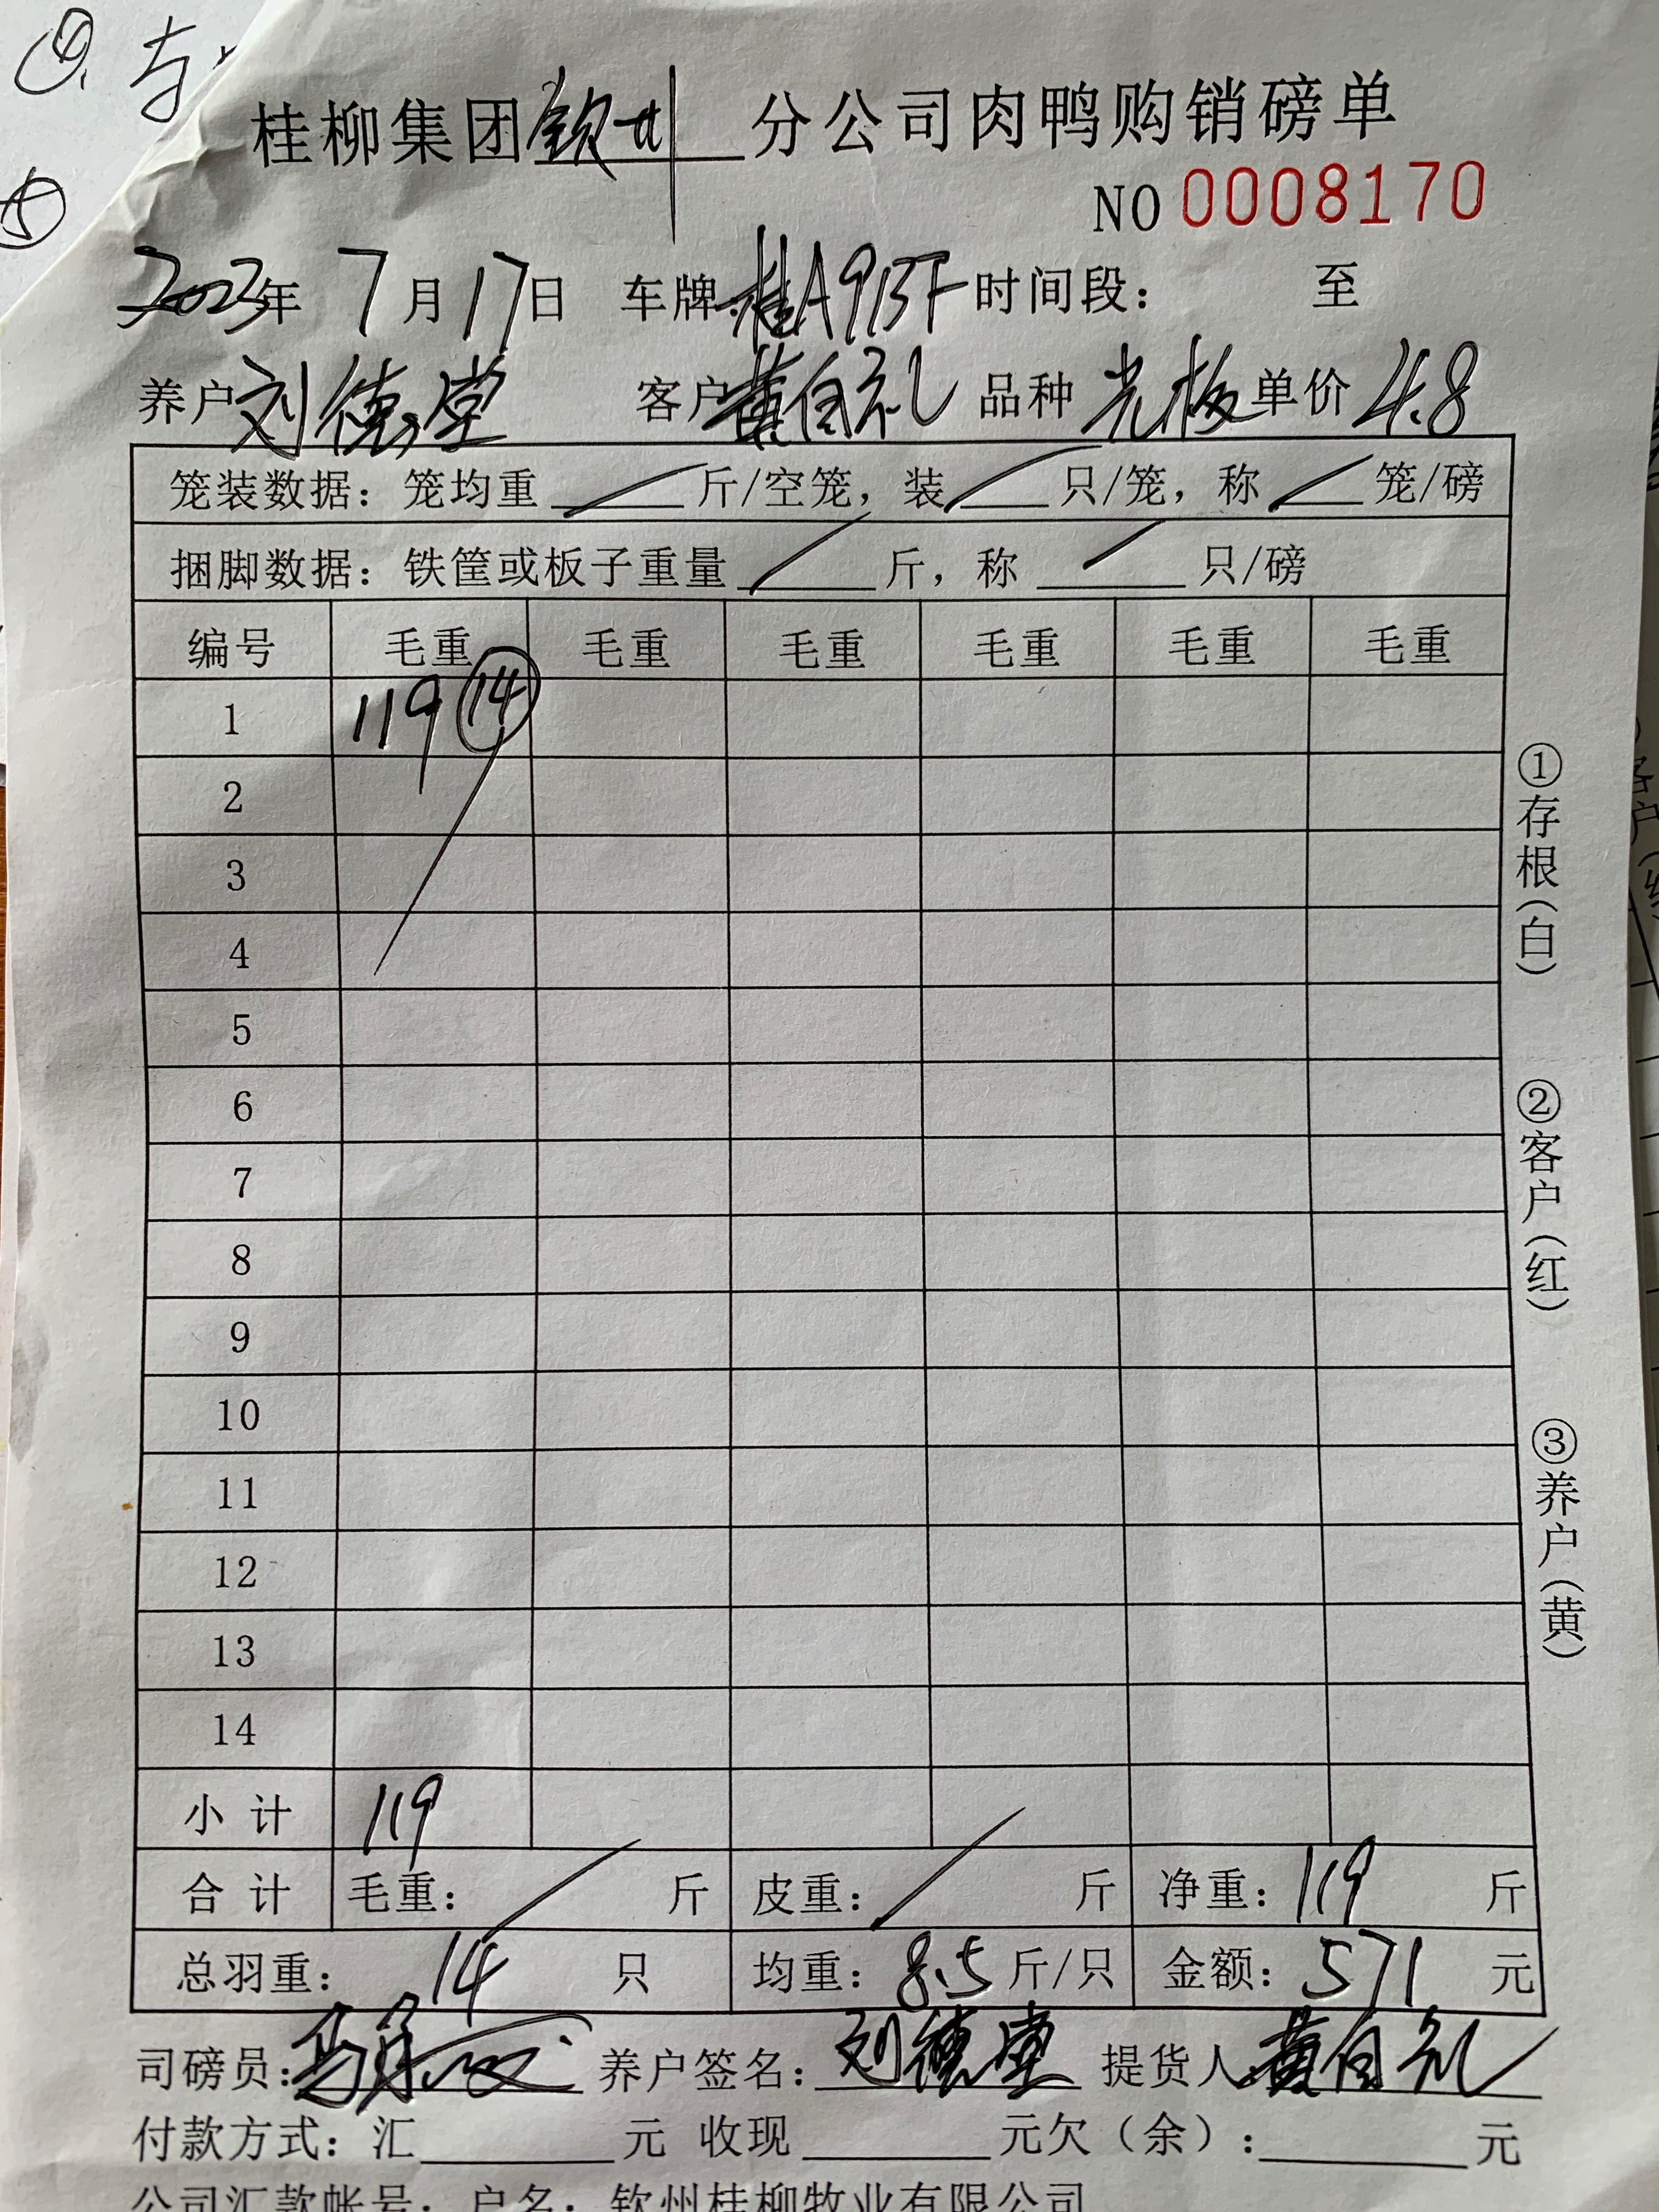 桂柳集团钦州分公司肉鸭购销磅单
NO 0008170
2023年 7月17日 车牌:桂A913F 时间段: 至
养户刘德堂 客户黄自礼 品种 光板 单价 4.8
笼装数据: 笼均重 / 斤/空笼, 装 / 只/笼, 称 / 笼/磅
捆脚数据: 铁筐或板子重量 / 斤, 称 / 只/磅
编号 毛重 毛重 毛重 毛重 毛重 毛重
1 119 ⑭
2
3
4
5
6
7
8
9
10
11
12
13
14
小计 119
合计 毛重: / 斤 皮重: / 斤 净重: 119 斤
总羽重: 14 只 均重: 8.5 斤/只 金额: 571 元
司磅员: 养户签名: 刘德堂 提货人 黄自礼
付款方式: 汇 元 收现 元欠(余): 元
公司汇款帐号: 户名: 钦州桂柳牧业有限公司
①存根(白)
②客户(红)
③养户(黄)